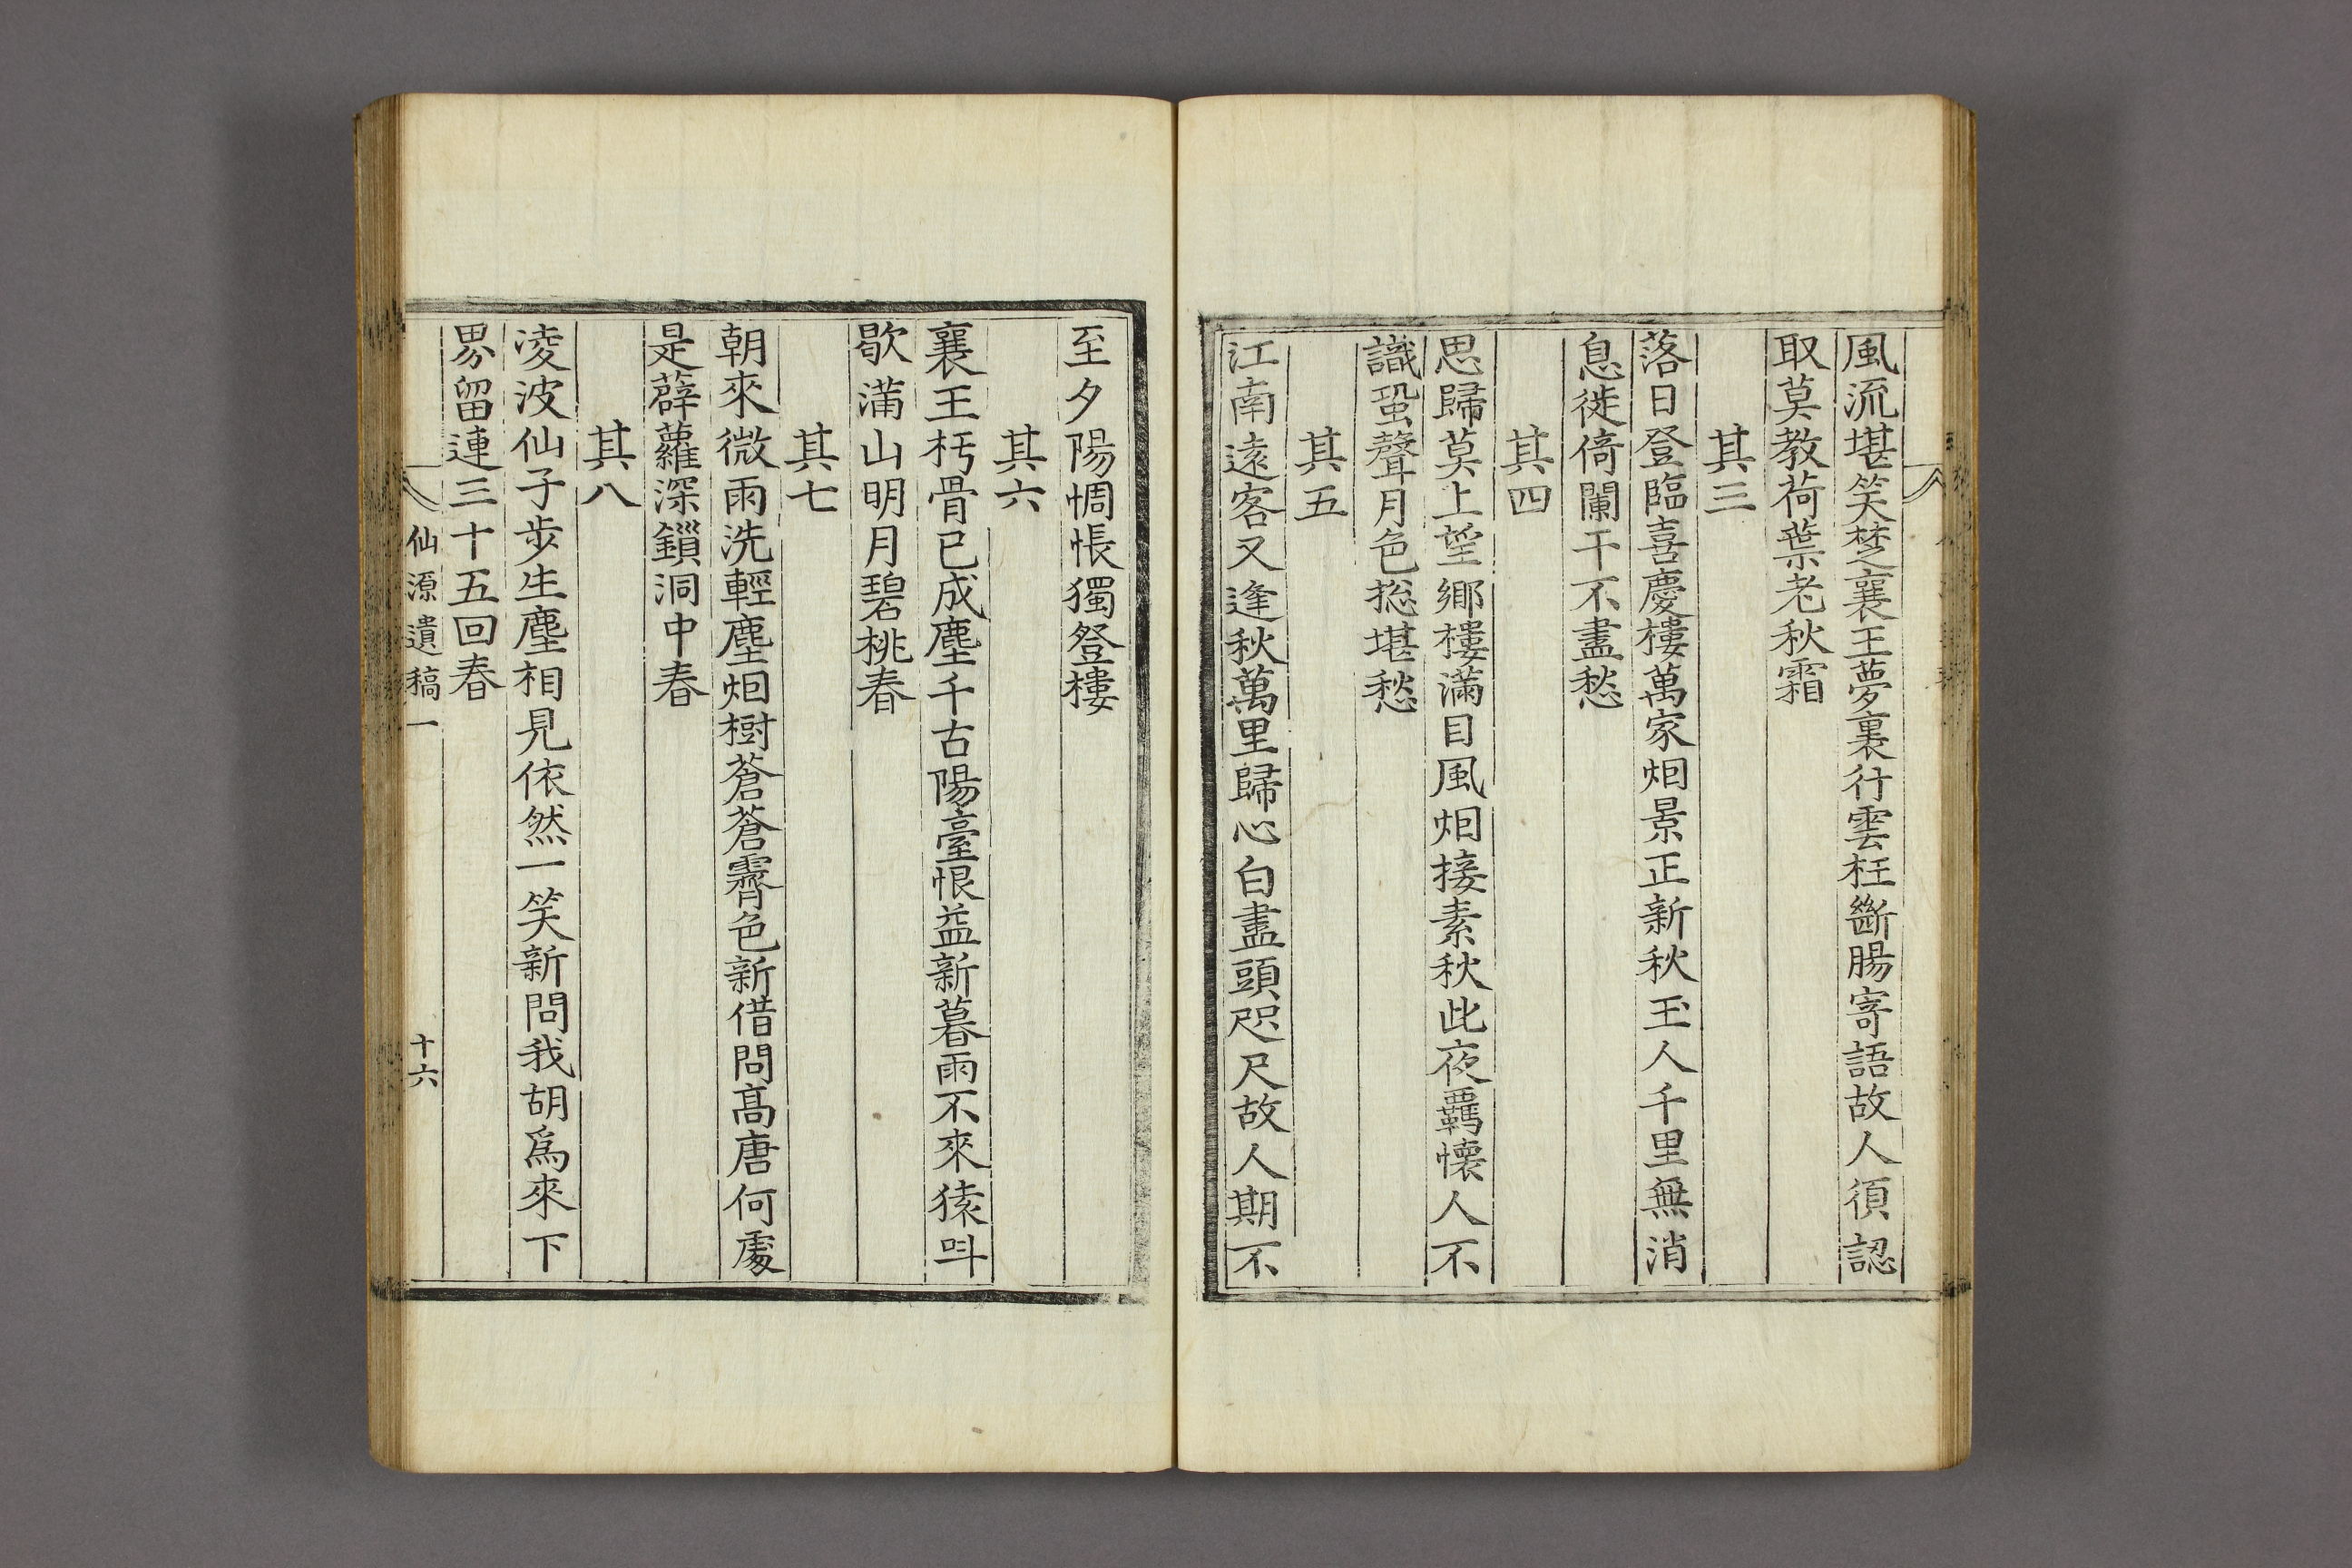 風流堪笑楚襄王夢裏行雲枉斷腸寄語故人須認
取莫教荷葉老秋霜
其三
落日登臨喜慶樓萬家烟景正新秋玉人千里無消
息徙倚闌干不盡愁
其四
思歸莫上望鄉樓滿目風烟接素秋此夜羇懷人不
識蛩聲月色捴堪愁
其五
江南遠客又逢秋萬里歸心白盡頭咫尺故人期不
至夕陽惆悵獨登樓
其六
襄王朽骨已成塵千古陽臺恨益新暮雨不來猿呌
歇滿山明月碧桃春
其七
朝來微雨洗輕塵烟樹蒼蒼霽色新借問高唐何處
是薜蘿深鎻洞中春
其八
凌波仙子步生塵相見依然一笑新問我胡爲來下
界留連三十五回春
仙源遺稿一
十六